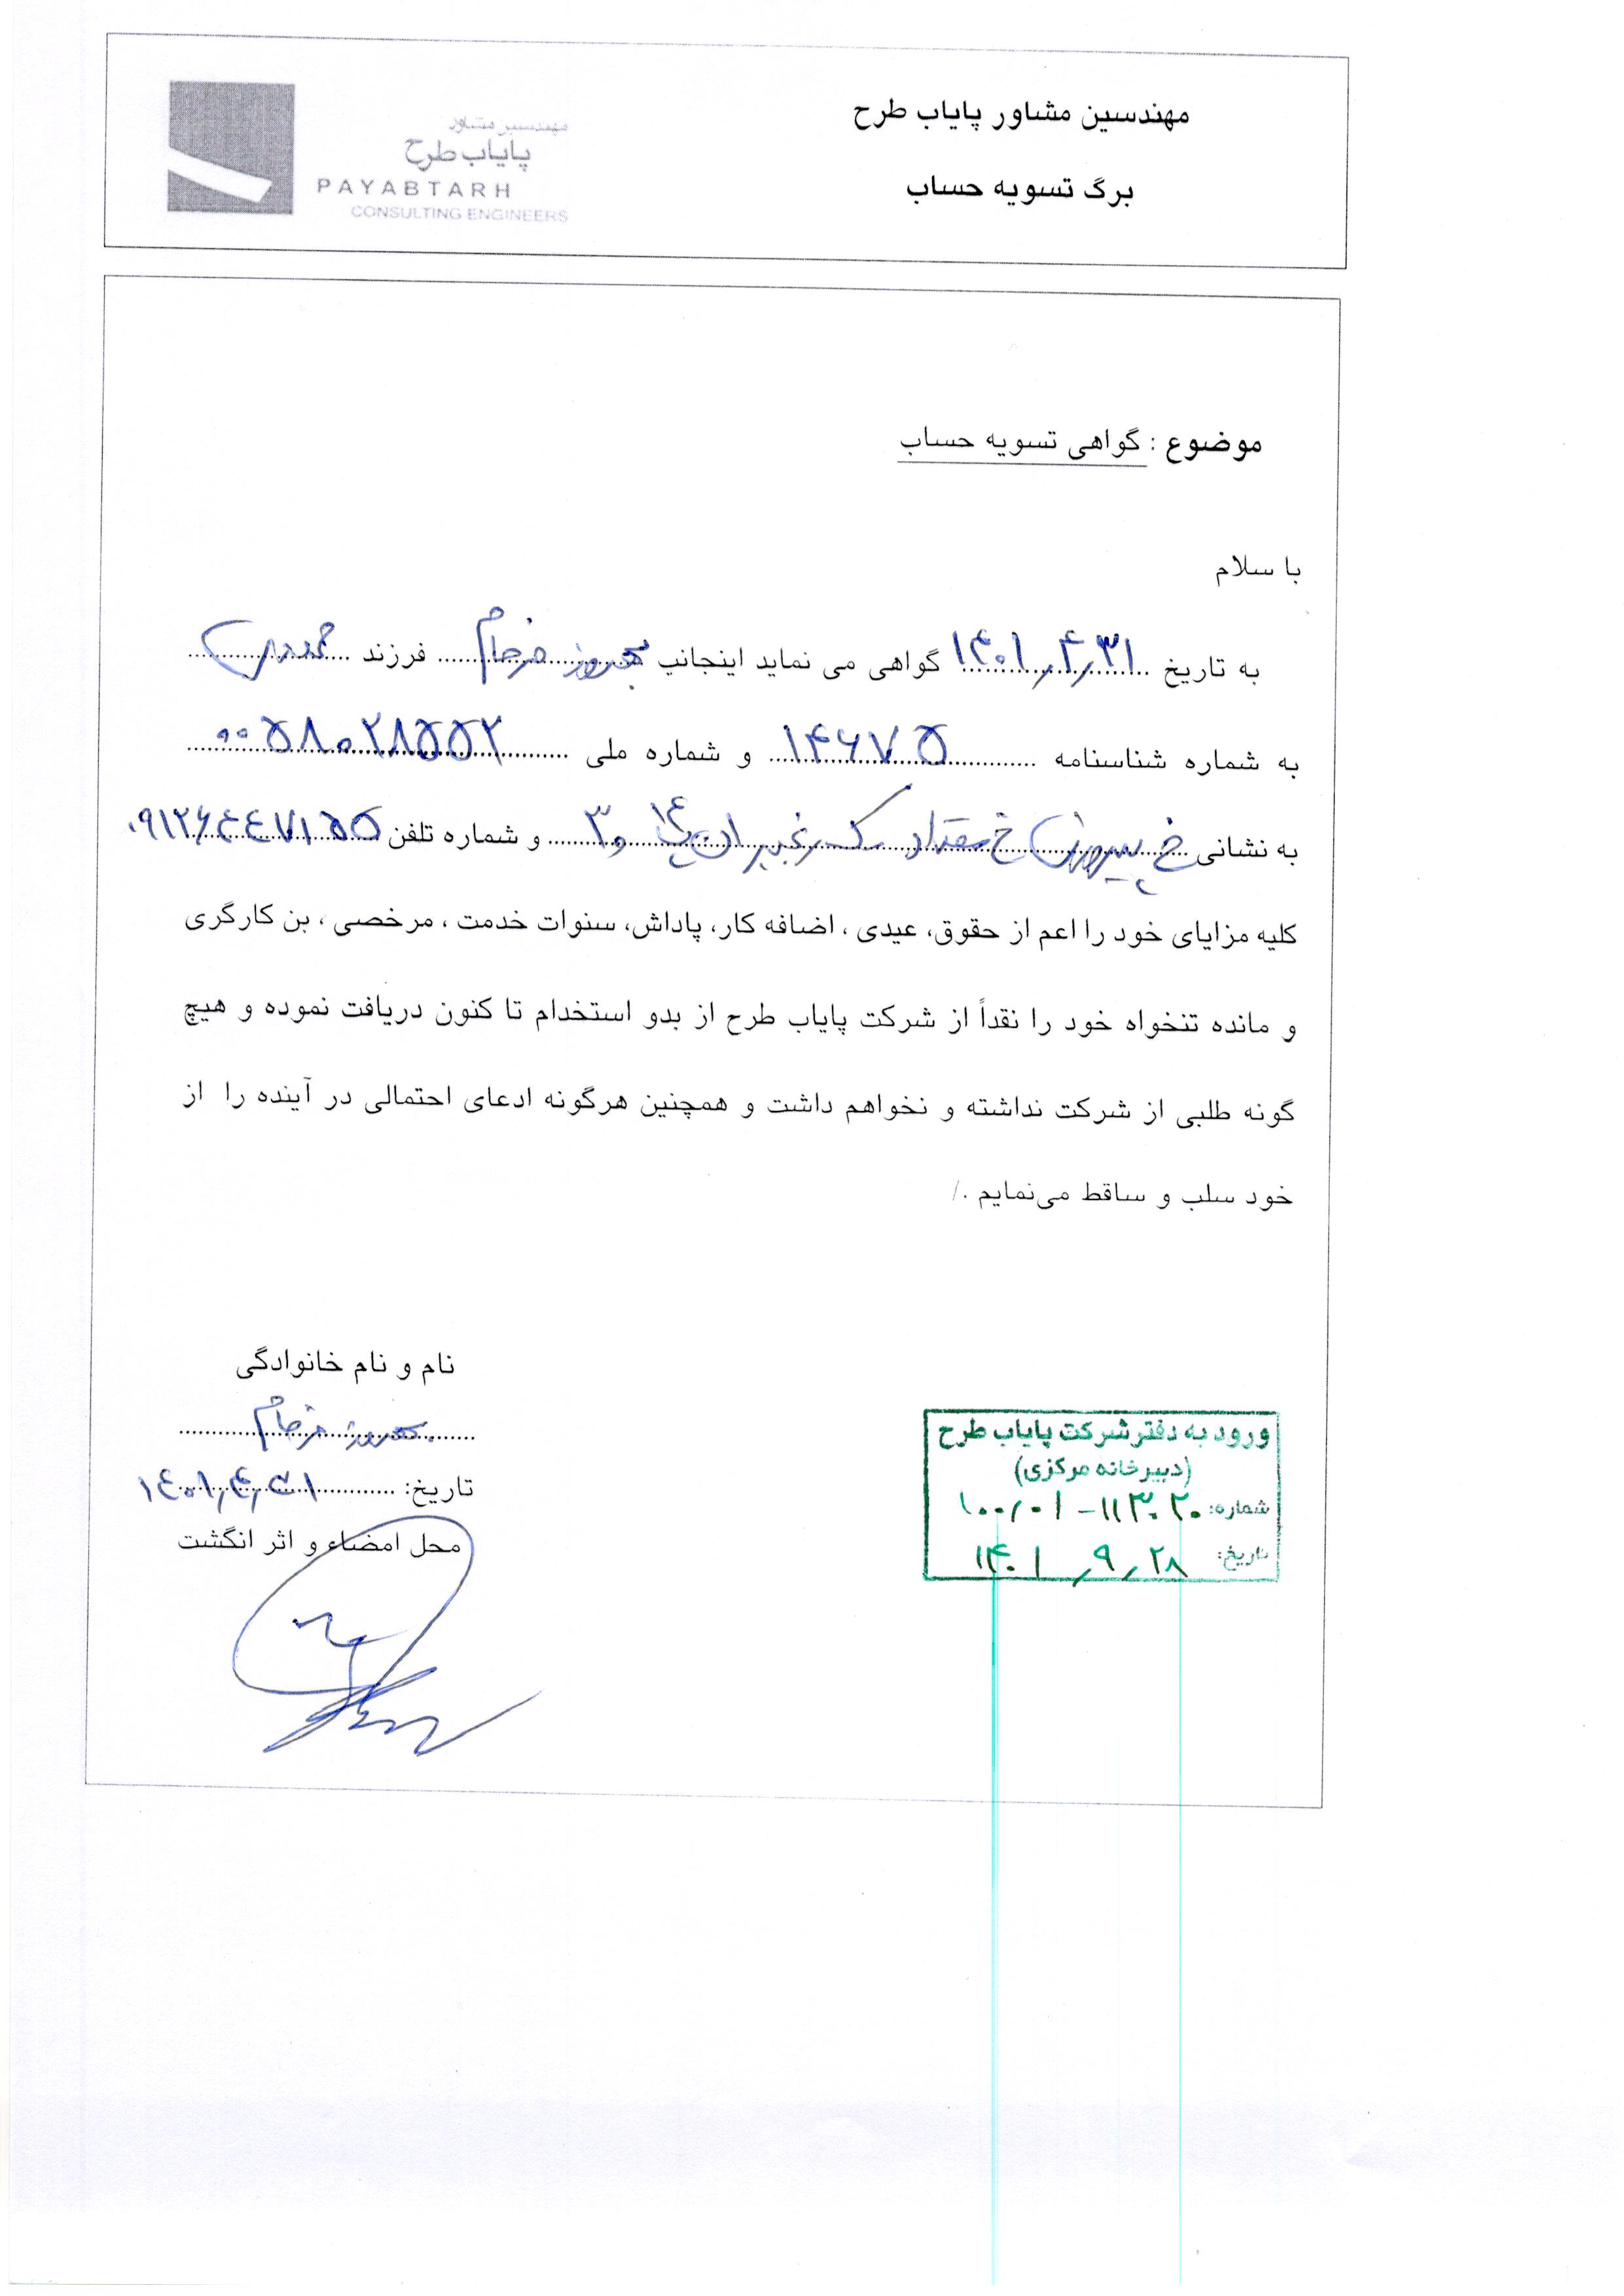 مهندسین مشاور پایاب طرح
برگ تسویه حساب
مهندسین مشاور
پایاب طرح
PAYABTARH
CONSULTING ENGINEERS
موضوع : گواهی تسویه حساب
با سلام
به تاریخ ۱۴۰۱٫۴٫۳۱ گواهی می نماید اینجانب بهروز فرجام فرزند
به شماره شناسنامه ۱۴۶۷۵ و شماره ملی ۰۰۵۸۰۲۸۵۵۲
به نشانی خ پیروزی خ مقداد پ ۱۴ و ۳ و شماره تلفن ۰۹۱۲۶۴۴۷۱۵۵
کلیه مزایای خود را اعم از حقوق، عیدی ، اضافه کار، پاداش، سنوات خدمت ، مرخصی ، بن کارگری
و مانده تنخواه خود را نقداً از شرکت پایاب طرح از بدو استخدام تا کنون دریافت نموده و هیچ
گونه طلبی از شرکت نداشته و نخواهم داشت و همچنین هرگونه ادعای احتمالی در آینده را از
خود سلب و ساقط می‌نمایم ./
نام و نام خانوادگی
بهروز فرجام
تاریخ: ۱۴۰۱٫۴٫۳۱
محل امضاء و اثر انگشت
ورود به دفتر شرکت پایاب طرح
(دبیرخانه مرکزی)
شماره: ۱۰۰/۰۱-۱۱۳۰۲۰
تاریخ: ۱۴۰۱٫۹٫۲۸